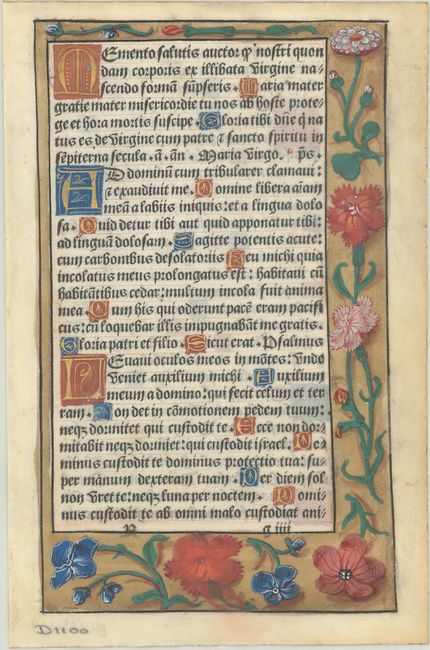 Memento salutis auctor ꝙ nostri quon
dam corporis ex illibata virgine na-
scendo formā sūpseris. Maria mater
gratie mater misericordie tu nos ab hoste prote-
ge et hora mortis suscipe. Gloria tibi dn̄e q̄ na
tus es de virgine cum patre ⁊ sancto spiritu in
sēpiterna secula. a. añ. Maria virgo. ps.
AD dominū cum tribularer clamaui:
⁊ exaudiuit me. Domine libera aīam
meā a labiis iniquis: et a lingua dolo
sa. Quid detur tibi aut quid apponatur tibi:
ad linguā dolosam. Sagitte potentis acute:
cum carbonibus desolatoriis. Heu michi quia
incolatus meus prolongatus est: habitaui cū
habitātibus cedar: multum incola fuit anima
mea. Cum his qui oderunt pacē eram pacifi
cus: cū loquebar illis impugnabāt me gratis.
Gloria patri et filio. Sicut erat. Psalmus
LEuaui oculos meos in mōtes: vnde
veniet auxilium michi. Auxilium
meum a domino: qui fecit celum et ter
ram. Non det in cōmotionem pedem tuum:
neqꝫ dormitet qui custodit te. Ecce non dor-
mitabit neqꝫ dormiet: qui custodit israel. Do-
minus custodit te dominus protectio tua: su-
per manum dexteram tuam. Per diem sol
non vret te: neqꝫ luna per noctem. Domi-
nus custodit te ab omni malo custodiat ani-
g iiii
D1100